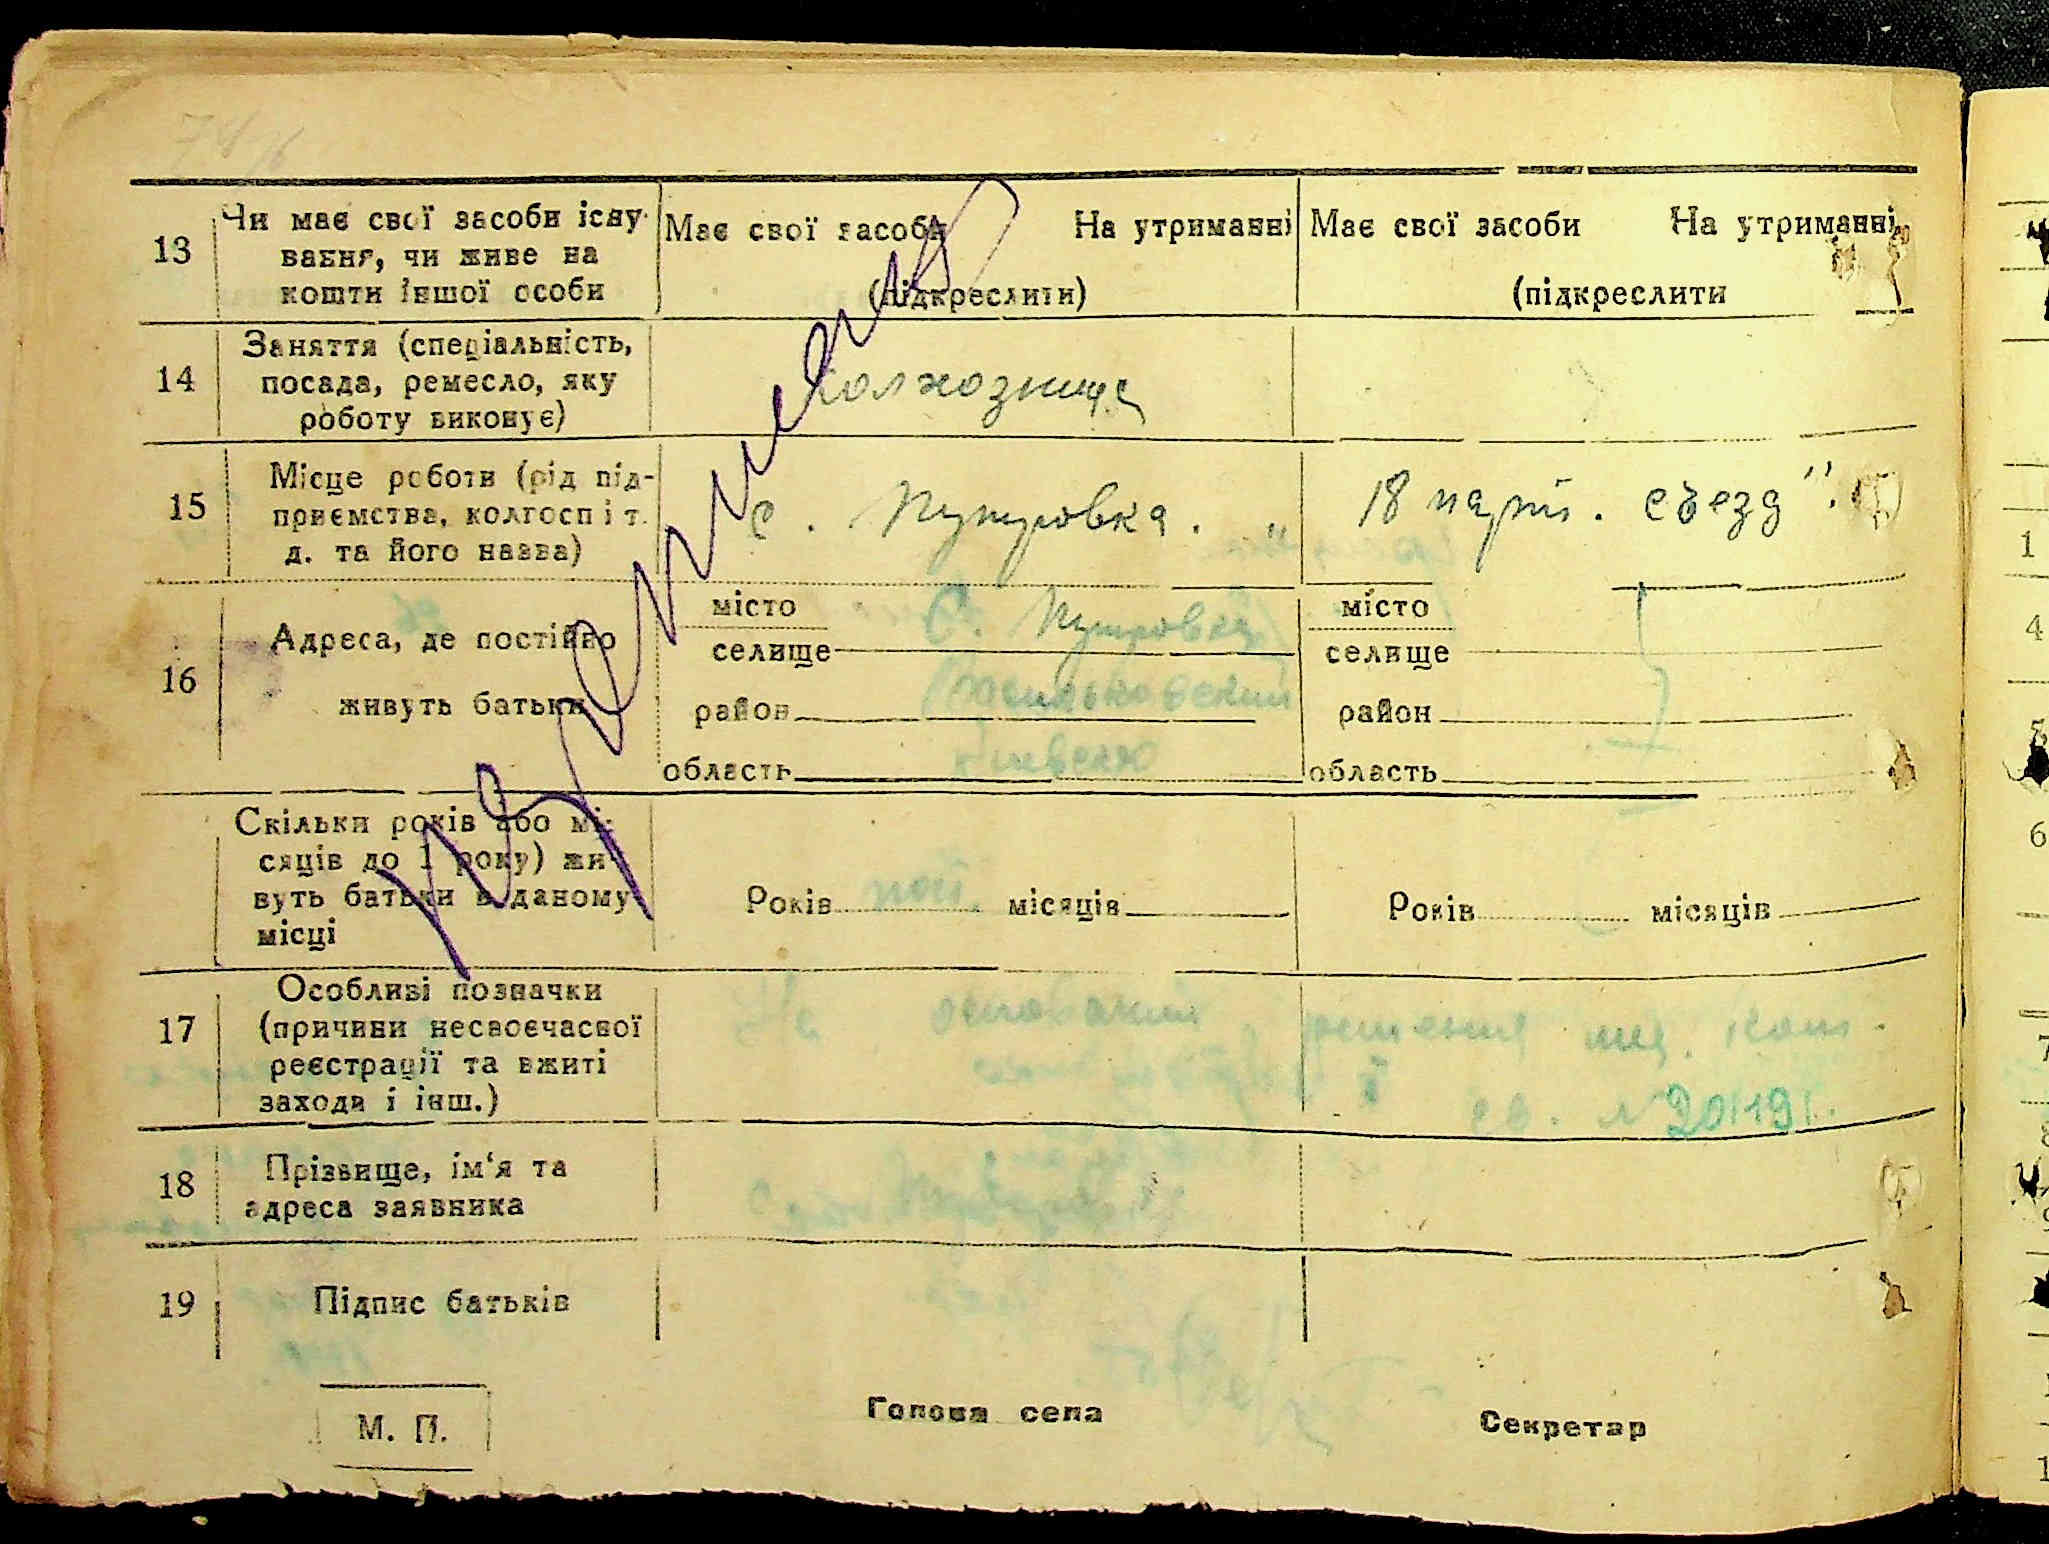 13
Чи має свої засоби існу-
вання, чи живе на
кошти іншої особи
Має свої засоби На утриманні
(підкреслити)
Має свої засоби На утриманні
(підкреслити
14
Заняття (спеціальність,
посада, ремесло, яку
роботу виконує)
колхозница
15
Місце роботи (рід під-
приємства, колгосп і т.
д. та його назва)
с. „ 18 парт. съезд".
16
Адреса, де постійно
живуть батьки
місто
селище
район
область Киевская
місто
селище
район
область
Скільки років або мі-
сяців до 1 року) жи-
вуть батьки в даному
місці
Років пост. місяців
Років місяців
17
Особливі позначки
(причини несвоєчасної
реєстрації та вжиті
заходи і інш.)
На основании решения
18
Прізвище, ім'я та
адреса заявника
19
Підпис батьків
М. П.
Голова села
Секретар
1
4
6